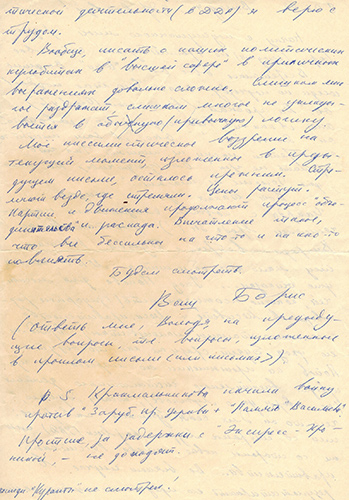 тической деятельности (в ДДР) я верю с
трудом.
Вообще, писать о наших политических
кульбитах в "высшей сфере" в приличных
выражениях довольно сложно. Слишком мно-
гое раздражает, слишком многое не уклады-
вается в обычную (привычную) логику.
Моё пессимистическое воззрение на
текущий момент, изложенное в преды-
дущем письме, осталось прежним. Стре-
мной везде, где стреляли. Цены растут.
Партии и движения продолжают процесс
и распада. Впечатление такое,
что все бессильны на что-то и на как-то
повлиять.
Будем смотреть.
Ваш Борис
(ответь мне, Володя на преды-
щие вопросы, те вопросы, изложенные
в прошлом письме (или письмах))
P.S. Крахмальникова начали войну
против "Заруб. пр. церкви" + "Память" Васильева
Простите, за задержки с "Экспресс-Хро-
никой", - не доходит.
"Куранты" не смотрел!